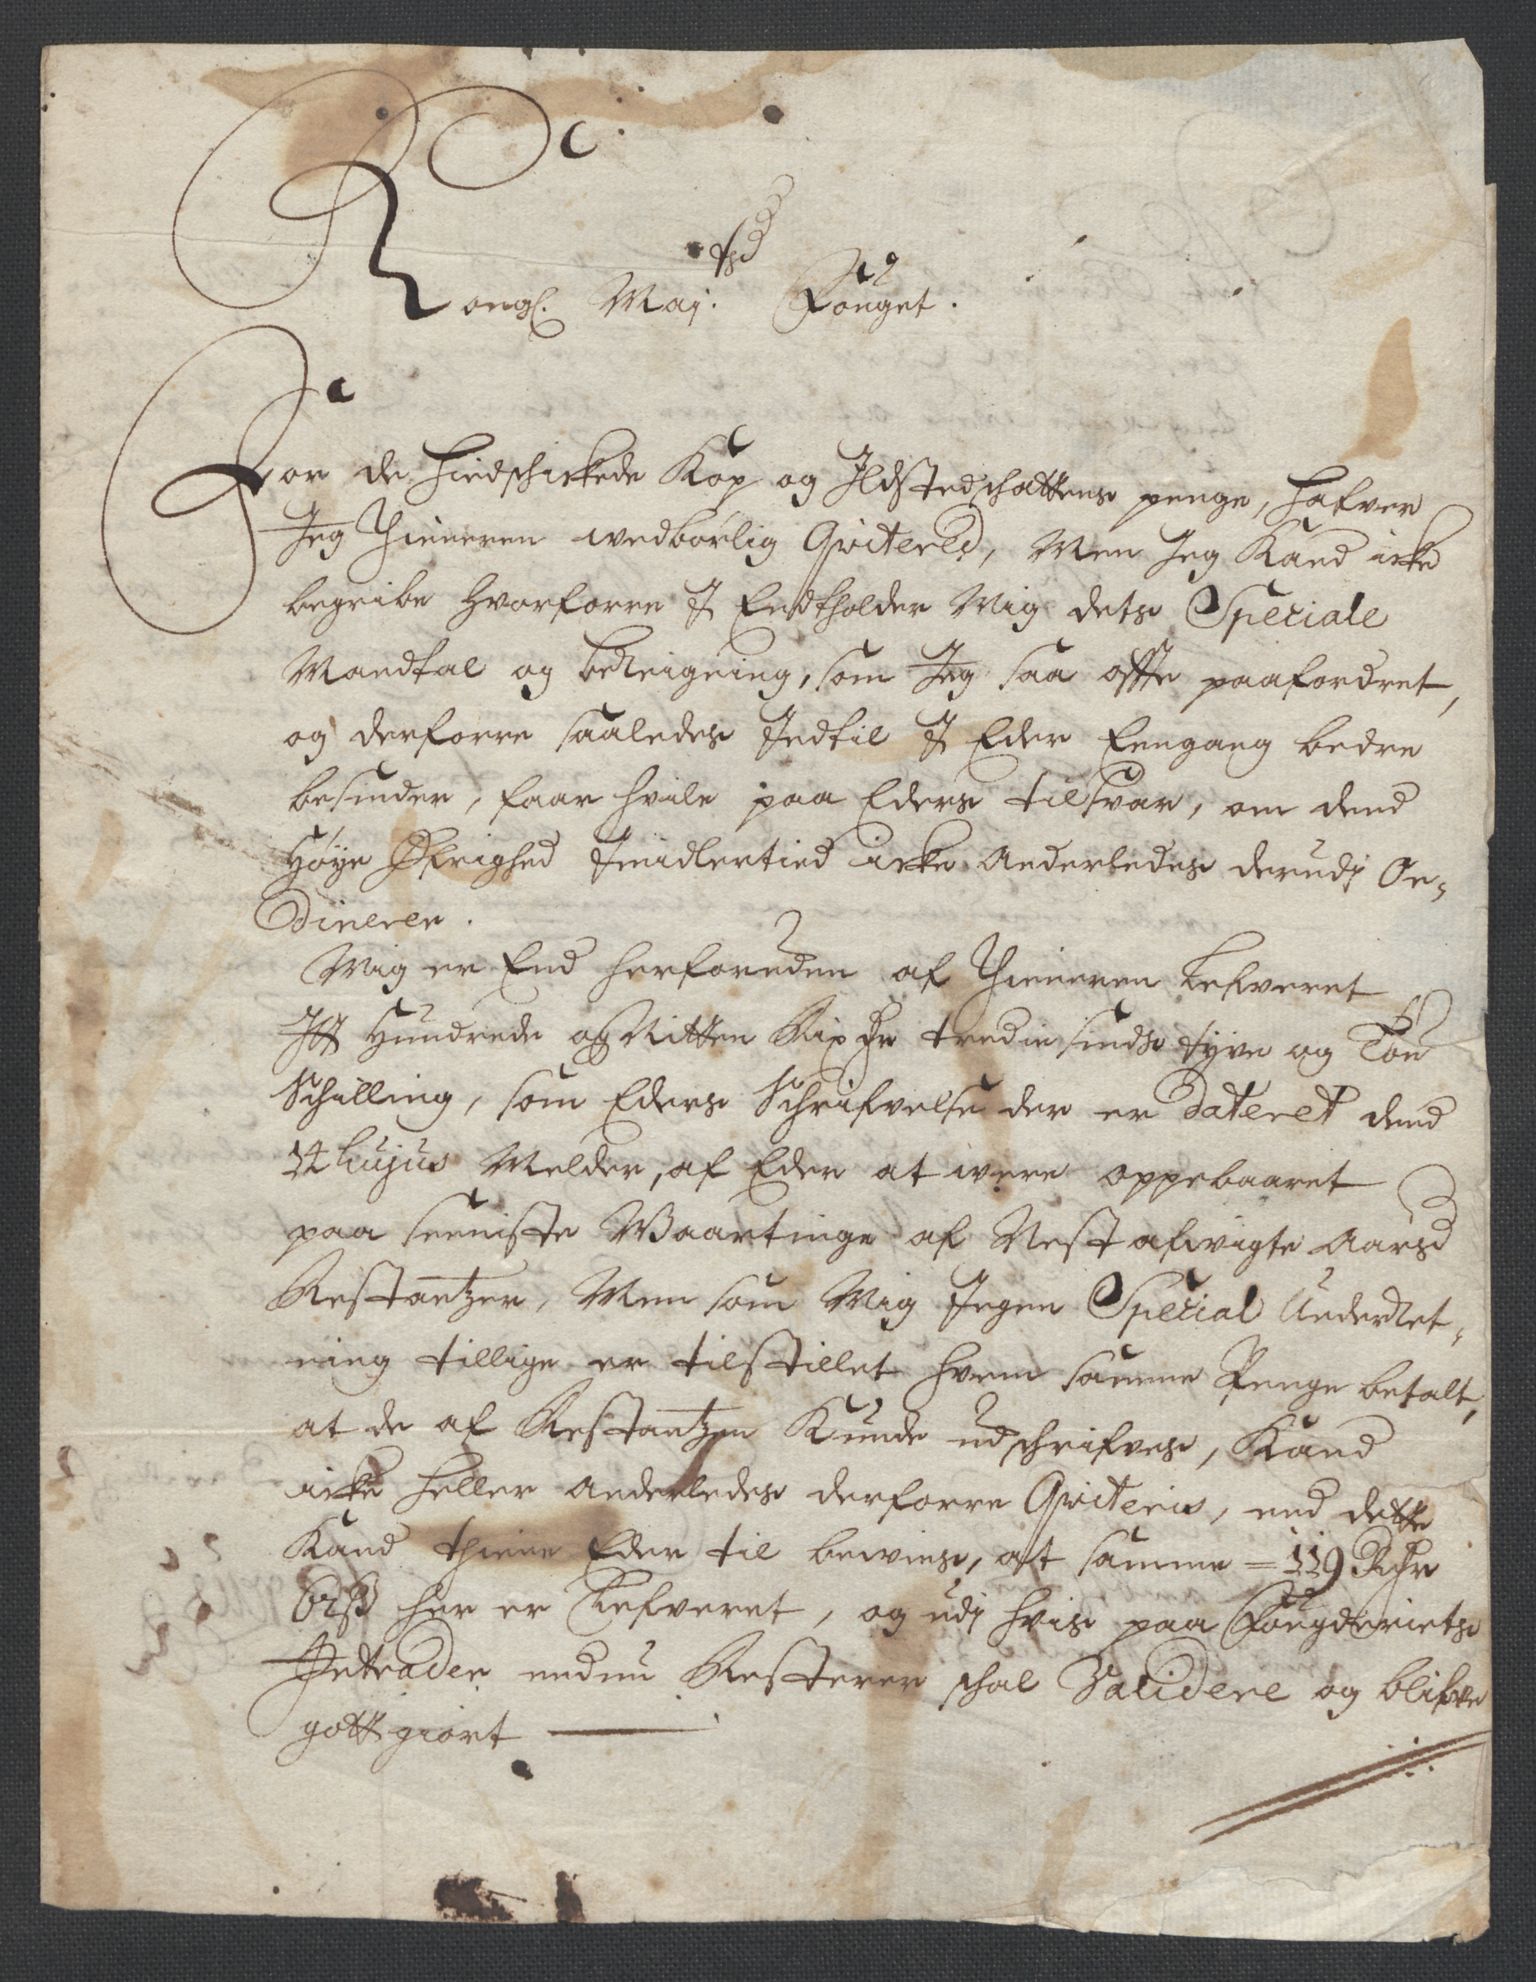 Kongl. Maj.ts Fouget.
For de hiedschickede Kop og Ildstedschattens penge, hafver
Jeg Thieneren wedbørlig Qviterid, Men Jeg Kand icke
begribe hvorforre I Endtholder Mig dets Speciale
Mandtal og beReigning, som Jeg saa offte paafordret,
og derforre saaledes Indtil I Eder Eengang bedre
besinder, faar hvile paa Eders tilsvar, om dend
Høye Øfrighed Imidlertied icke anderledes derudj Or-
dinerer.
Mig er End herforuden af Thieneren Lefveret
Itt Hundrede og Nitten Rix Dr tredie sinds tyve og Toe
Schilling, som Eders Schrifvelse der er dateret dend
14 hujus Melder, af Eder at were oppebaaret
paa seeniste Waartinge af Nest afvigte Aars
Restantzer, Men som Mig Ingen Special Underret-
ning tillige er tilstillet hvem samme Penge betalt,
at de af Restantzen Kunde udschrifves, Kand
icke heller anderledes derforre Qviteris, end dette
Kand thiene Eder til bewiis, at samme = 119 Rdr
62 ß her er Lefveret, og udj hvis paa Fougderiets
Intrader endnu Resterer schal Validere og blifve
gott giort